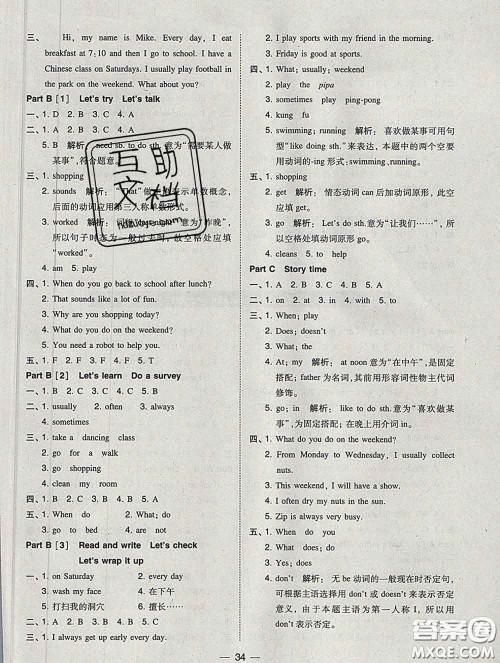 三、 Hi, my name is Mike. Every day, I eat
breakfast at 7:10 and then I go to school. I have a
Chinese class on Saturdays. I usually play football in
the park on the weekend. What about you?
Part B [1] Let's try Let's talk
一、1. D 2. B 3. C 4. A
二、1. A 2. C 3. A 4. C
5. B 解析: need sb. to do sth. 意为“需要某人做
某事”,符合题意。
三、1. shopping
2. sounds 解析: “That”
后面的动词应用第三人称单数形式。
3. worked 解析:
所以句子时态为一般过去时,故空格处应填
“worked”。
4. am 5. play
四、1. When do you go back to school after lunch?
2. That sounds like a lot of fun.
3. Why are you shopping today?
4. What do you do on the weekend?
5. You need a robot to help you.
五、1. F 2. F 3. F 4. F 5. T
Part B [2] Let's learn Do a survey
一、1. A 2. B 3. C 4. B 5. A
二、1. usually 2. often 3. always
4. sometimes
三、1. take a dancing class
2. go for a walk
3. go shopping
4. clean my room
四、1. B 2. C 3. B 4. B 5. A
五、1. When do 2. What; do
3. go to bed 4. are not
Part B [3] Read and write Let's check
Let's wrap it up
一、1. on Saturday 2. every day
3. wash my face 4. 在下午
5. 打扫我的洞穴 6. 擅长……
二、1. B 2. A 3. C 4. A 5. C
三、1. I always get up early every day.
2. I play sports with my friend in the morning.
3. Friday is good at sports.
四、1. What; usually; weekend
2. play the pipa
3. sometimes play ping-pong
4. kung fu
5. swimming; running 解析: 喜欢做某事可用
“like doing sth.”来表达,本题中的两个空要
用动词的-ing 形式:swimming; running。
五、1. shopping
2. get 解析: 情态动词 can 后加动词原形,此
空应填 get。
3. go 解析: Let's do sth. 意为“让我们……”,所
以空格处填动词原形 go。
4. cleans 5. to help
Part C Story time
一、1. on 2. at 3. in 4. to 5. with
二、1. B 2. C 3. C 4. B 5. A
三、1. When; play
2. Does; doesn't
3. What; the
4. At; my 解析: at noon 意为“在中午”,是固定
搭配;father 为名词,其前用形容词性物主代词
修饰。
5. go; in 解析: like to do sth.意为“喜欢做某
事”,为固定搭配;在晚上用介词 in。
四、1. What do you do on the weekend?
2. From Monday to Wednesday, I usually collect
nuts.
3. I am a hard-working squirrel.
4. I often dry my nuts in the sun.
5. Zip is always very excited.
五、1. When; do
2. What; do
3. Yes; does
4. don't 解析: 无 be 动词的一般现在时否定句,
可根据主语使用 don't 或者 doesn't 来表示否
定意义,由于本题主语为第一人称 I,所以用
don't 表示否定。
34
互助
文档
答案圈
MXQE.COM